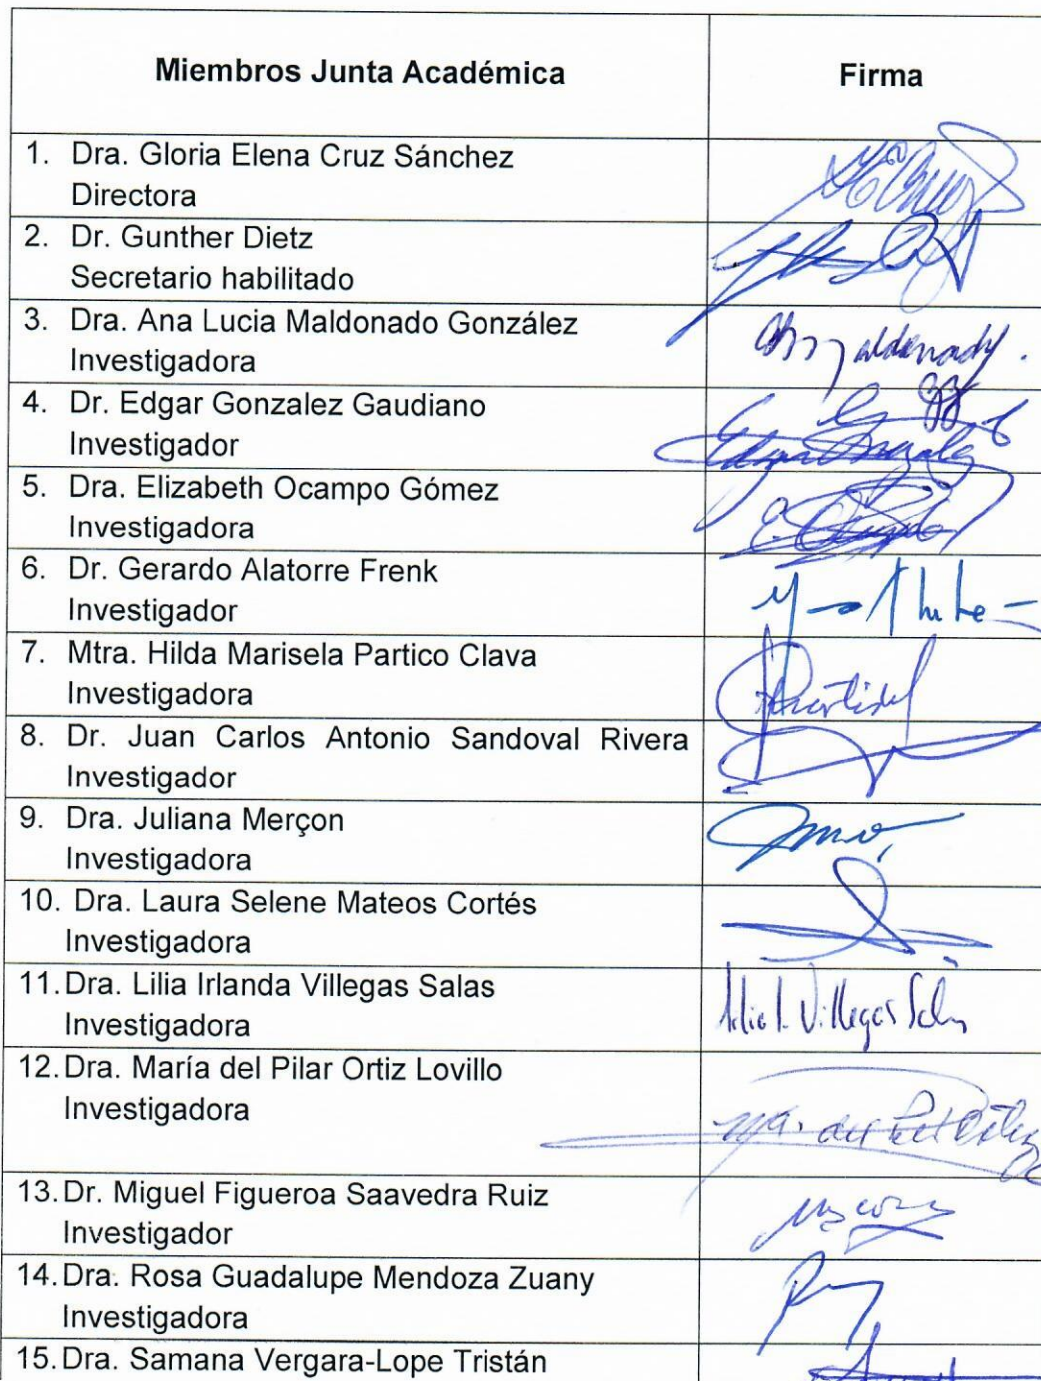 Miembros Junta Académica
Firma
1. Dra. Gloria Elena Cruz Sánchez
Directora
2. Dr. Gunther Dietz
Secretario habilitado
3. Dra. Ana Lucia Maldonado González
Investigadora
4. Dr. Edgar Gonzalez Gaudiano
Investigador
5. Dra. Elizabeth Ocampo Gómez
Investigadora
6. Dr. Gerardo Alatorre Frenk
Investigador
7. Mtra. Hilda Marisela Partico Clava
Investigadora
8. Dr. Juan Carlos Antonio Sandoval Rivera
Investigador
9. Dra. Juliana Merçon
Investigadora
10. Dra. Laura Selene Mateos Cortés
Investigadora
11. Dra. Lilia Irlanda Villegas Salas
Investigadora
Villegas
12. Dra. María del Pilar Ortiz Lovillo
Investigadora
13. Dr. Miguel Figueroa Saavedra Ruiz
Investigador
14. Dra. Rosa Guadalupe Mendoza Zuany
Investigadora
15. Dra. Samana Vergara-Lope Tristán